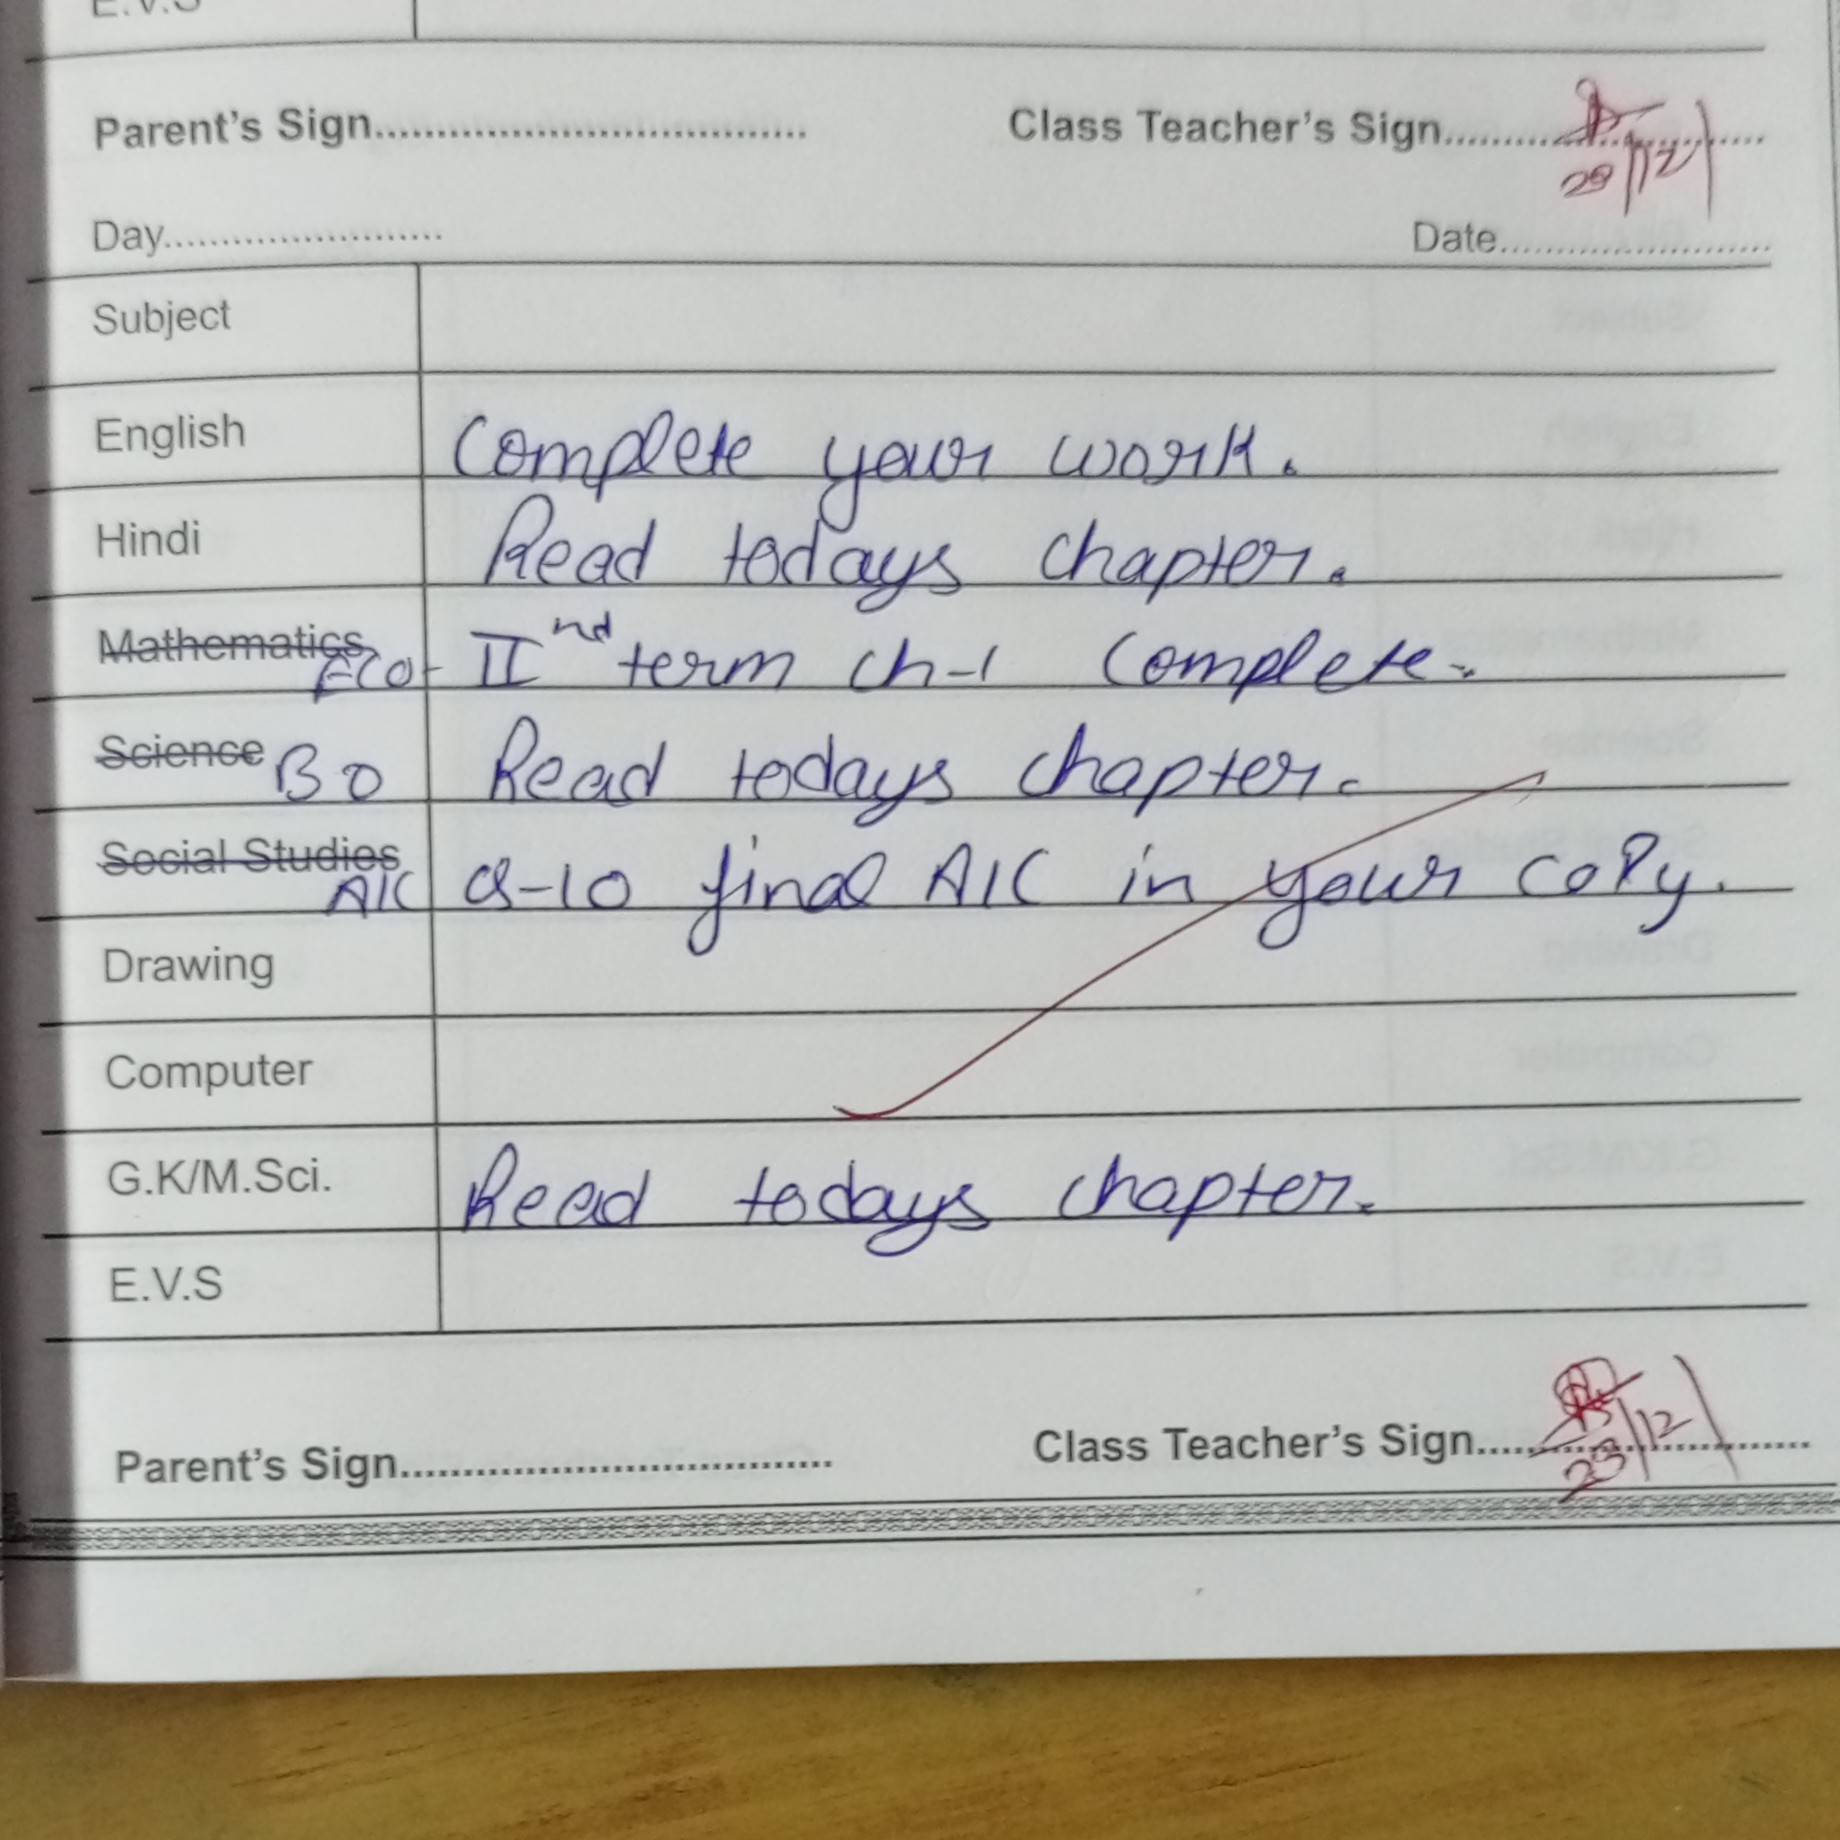 E.V.S
Parent's Sign.................................... Class Teacher's Sign..........................
29/12/
Day........................ Date.......................
Subject
English Complete your work.
Hindi Read todays chapter.
Mathematics Eco- IInd term ch-1 Complete.
Science BO Read todays chapter.
Social Studies A/C Q-10 final A/C in your coPy.
Drawing
Computer
G.K/M.Sci. Read todays chapter.
E.V.S
Parent's Sign.................................... Class Teacher's Sign............................
23/12/